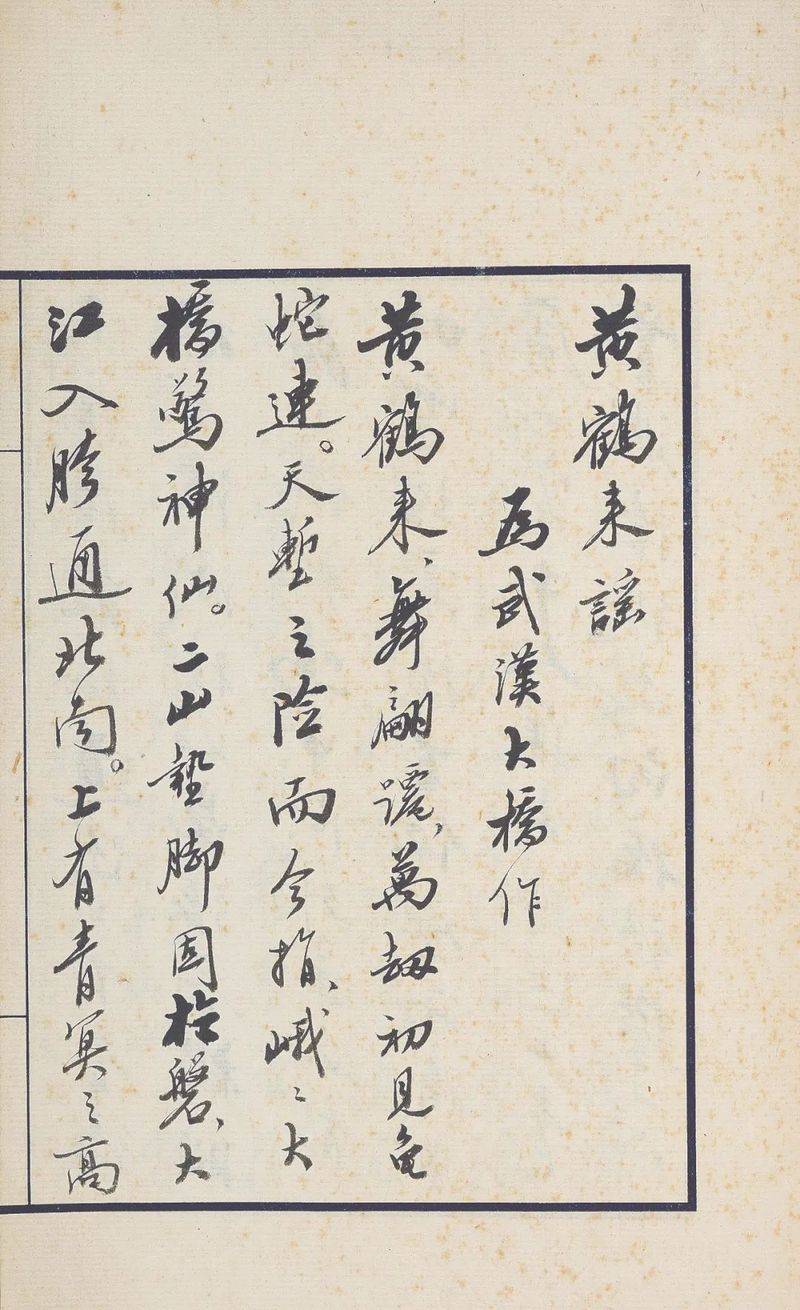 黄鶴来謡
為武漢大橋作
黄鶴来、舞翩躚、萬劫初見龟
蛇連。天塹之险而今指、峨々大
橋驚神仙。二山墊脚固於磐、大
江入胯通北南。上有青冥之高